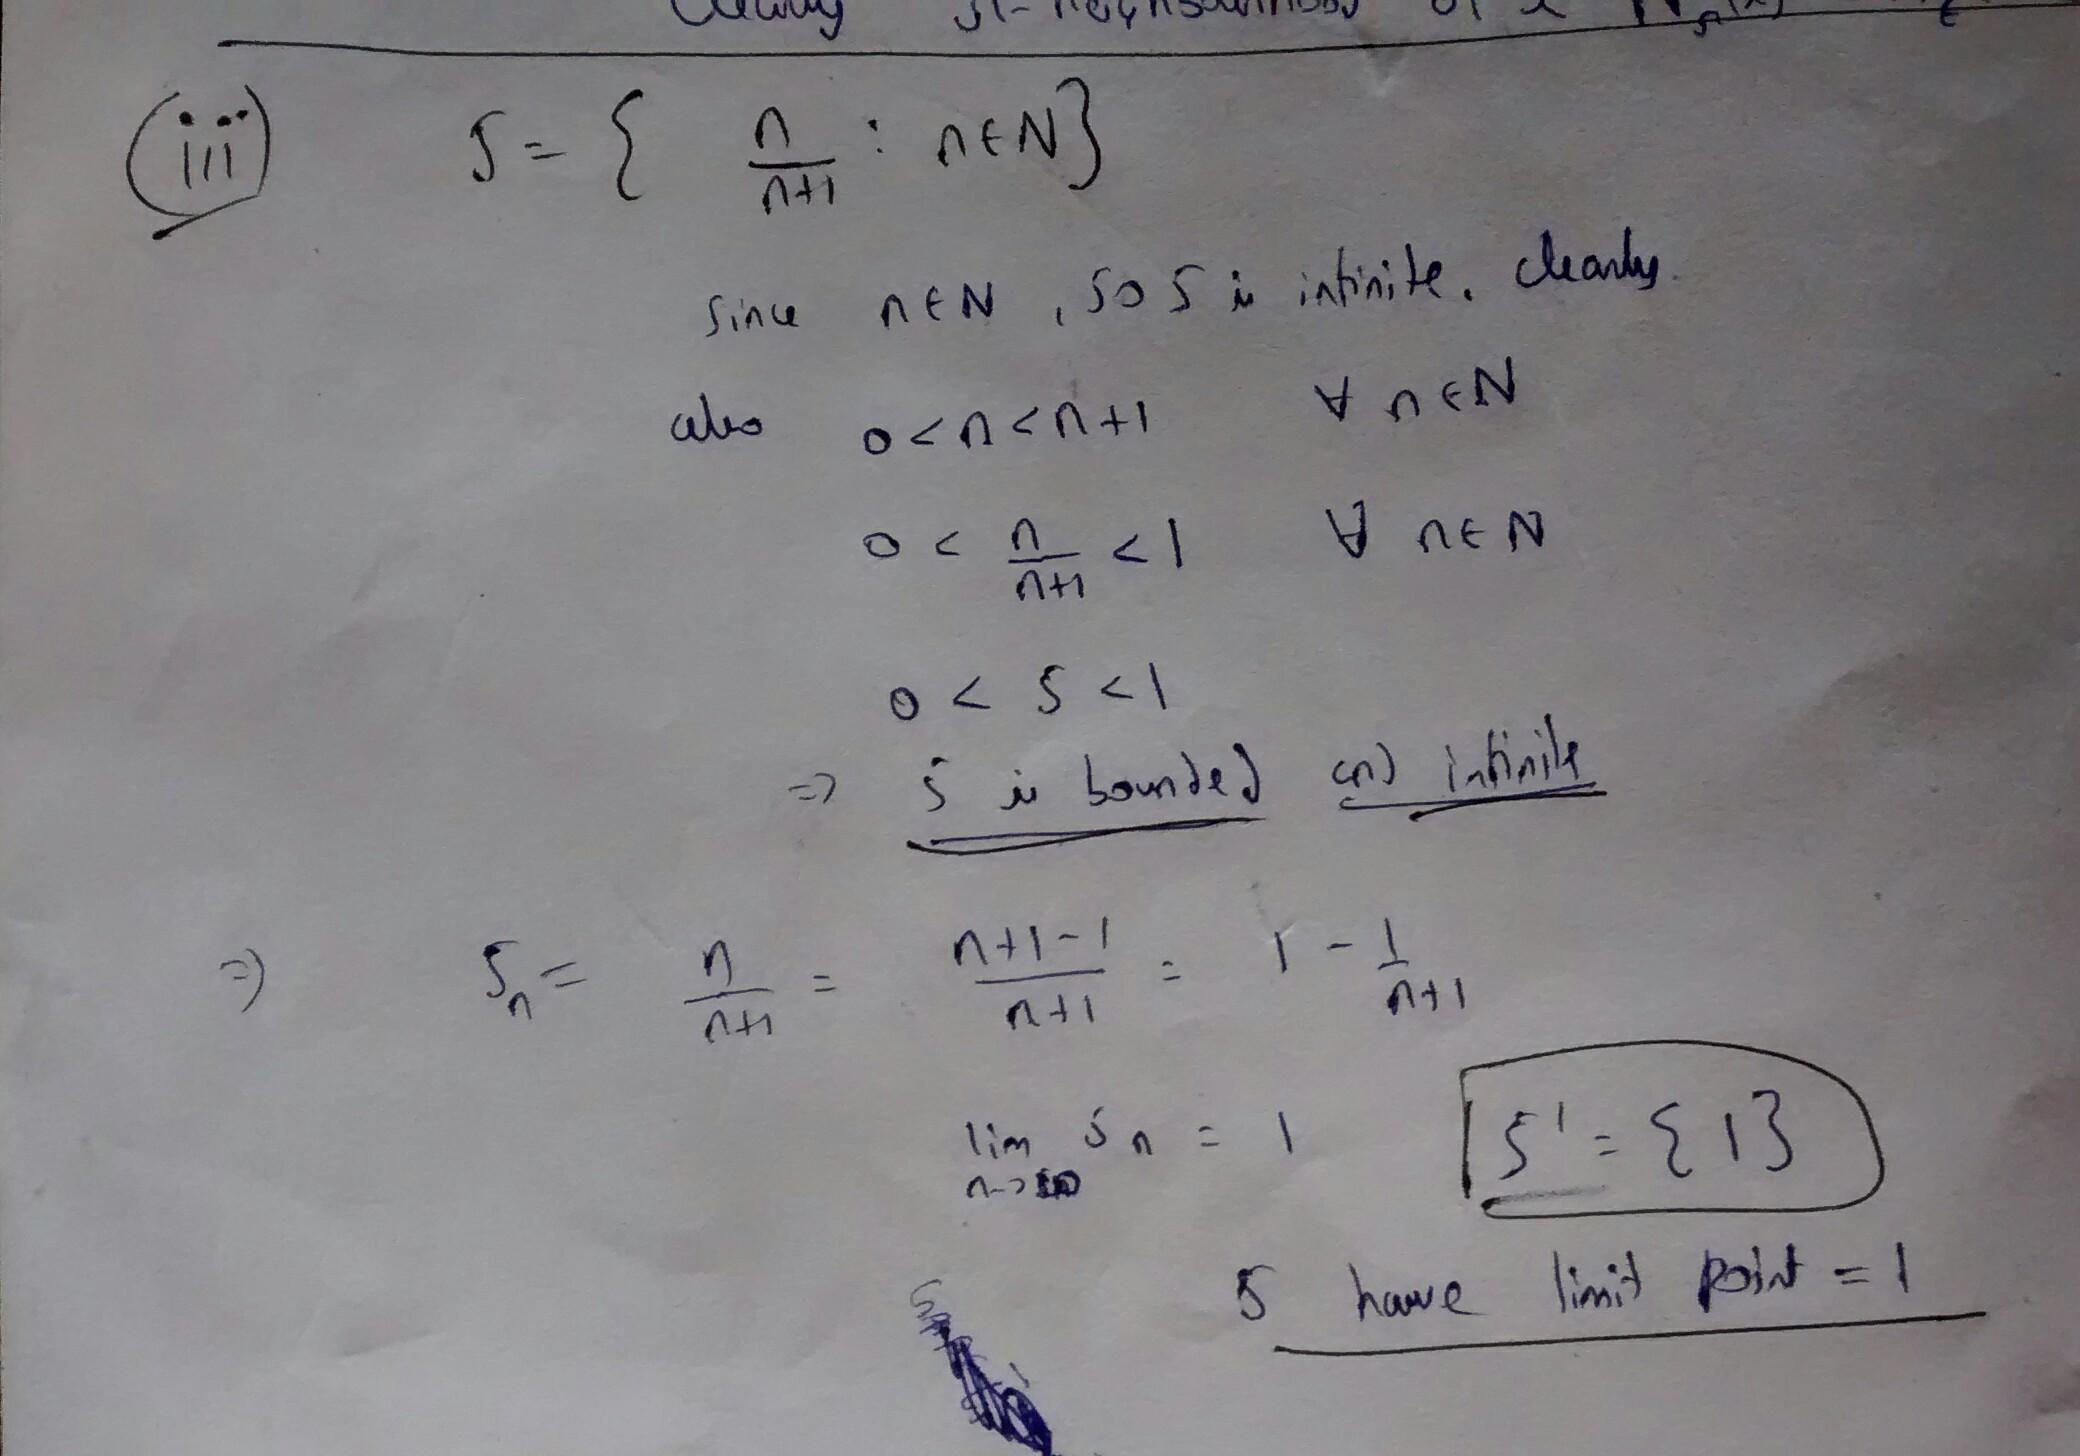 Clearly
(iii) S = { n/n+1 : n∈N}
Since n∈N, so S is infinite. clearly.
also 0<n<n+1 ∀ n∈N
0 < n/n+1 < 1 ∀ n∈N
0 < S < 1
=> S is bounded and infinite
=> Sn = n/n+1 = n+1-1/n+1 = 1 - 1/n+1
lim n->∞ Sn = 1 S' = {1}
S have limit point = 1